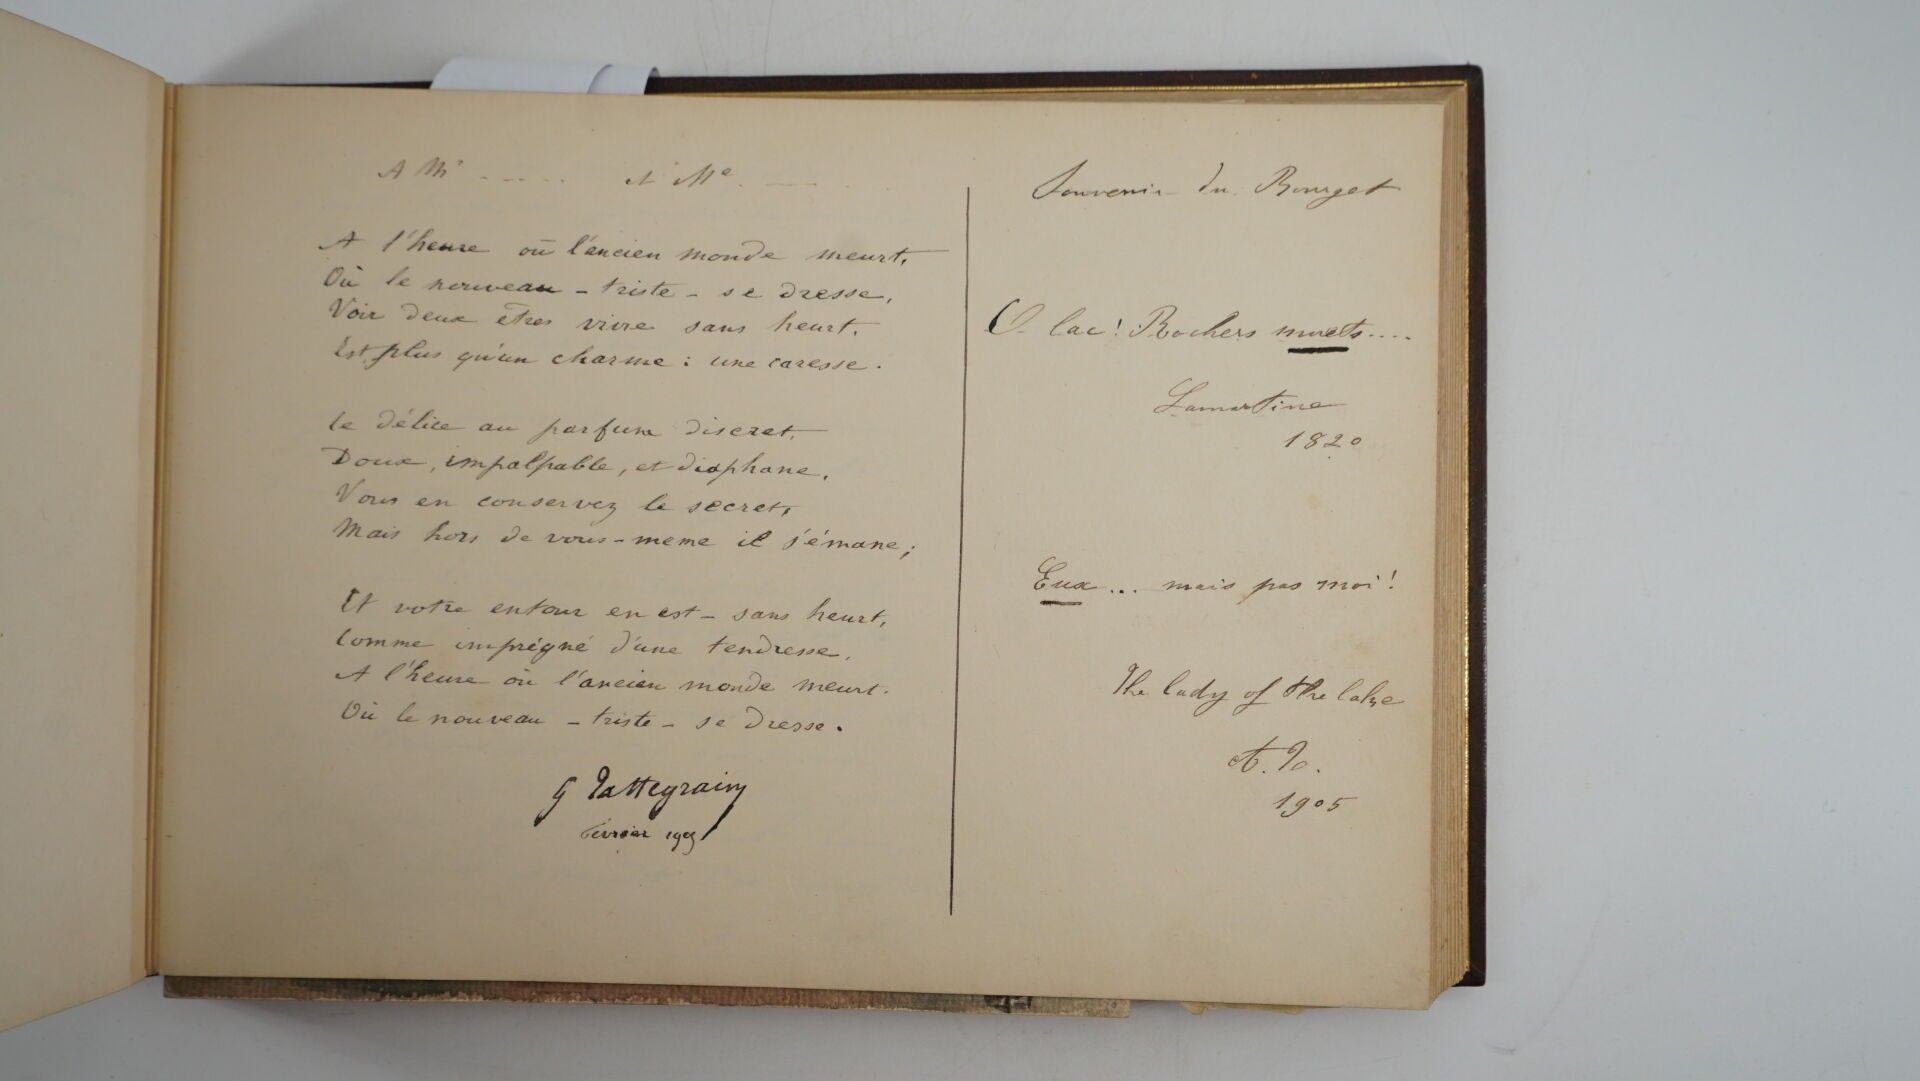 A Mr ..... A Me. .....
A l'heure où l'ancien monde meurt,
Où le nouveau - triste - se dresse,
Voir deux êtres vivre sans heurt,
Est plus qu'un charme : une caresse.
Ce délice au parfum discret,
Doux, impalpable, et diaphane,
Vous en conservez le secret,
Mais hors de vous-meme il s'émane;
Et votre entour en est - sans heurt,
Comme imprégné d'une tendresse,
A l'heure où l'ancien monde meurt.
Où le nouveau - triste - se dresse.
G Tattegrain
février 1905
Souvenir du Bourget
O lac! Rochers muets....
Lamartine
1820
Eux ... mais pas moi!
The lady of the lake
1905